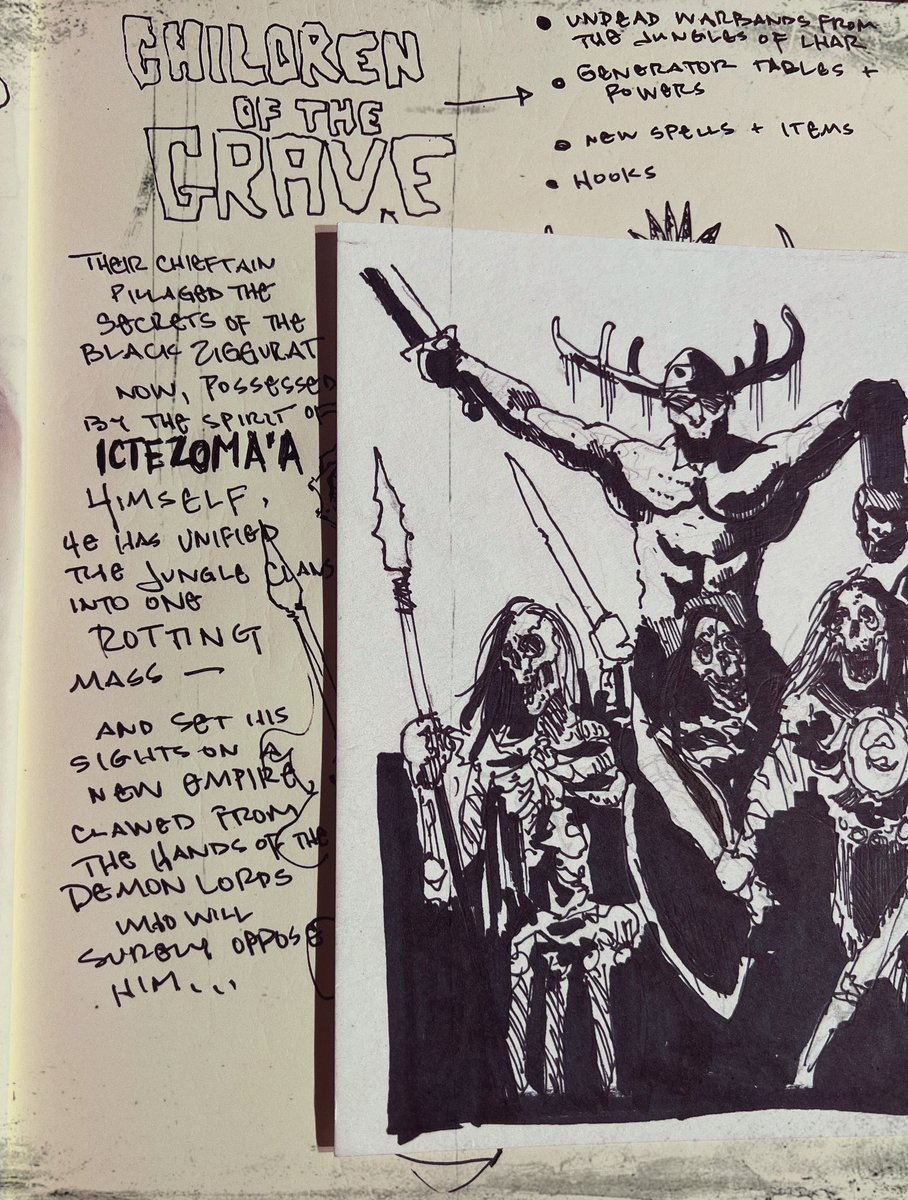 CHILDREN
OF THE
GRAVE
• UNDEAD WARBANDS FROM
THE JUNGLES OF LHAR
• GENERATOR TABLES +
POWERS
• NEW SPELLS + ITEMS
• HOOKS
THEIR CHIEFTAIN
PILLAGED THE
SECRETS OF THE
BLACK ZIGGURAT
NOW, POSSESSED
BY THE SPIRIT OF
ICTEZOMA'A
HIMSELF,
HE HAS UNIFIED
THE JUNGLE CLANS
INTO ONE
ROTTING
MASS —
AND SET HIS
SIGHTS ON A
NEW EMPIRE
CLAWED FROM
THE HANDS OF THE
DEMON LORDS
WHO WILL
SURELY OPPOSE
HIM...